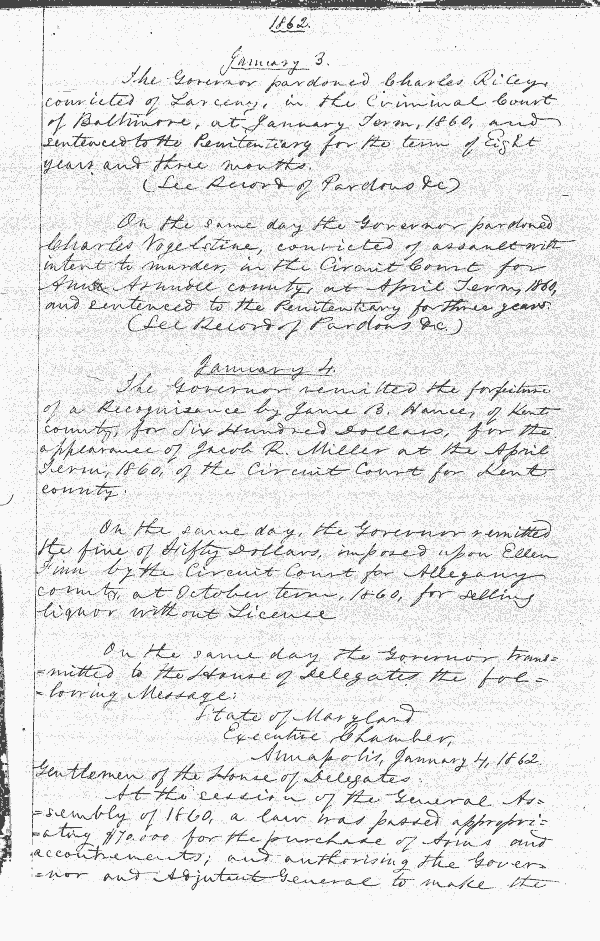 1862.
January 3.
The Governor pardoned Charles Riley,
convicted of Larceny, in the Criminal Court
of Baltimore, at January Term, 1860, and
sentenced to the Penitentiary for the term of Eight
years and three months.
(See Record of Pardons &c)
On the same day the Governor pardoned
Charles Vogelstine, convicted of assault with
intent to murder, in the Circuit Court for
Anne Arundle county, at April Term, 1860,
and sentenced to the Penitentiary for three years.
(See Record of Pardons &c.)
January 4.
The Governor remitted the forfeiture
of a Recognisance by Jame B. Hance, of Kent
county, for Six Hundred Dollars, for the
appearance of Jacob R. Miller at the April
Term, 1860, of the Circuit Court for Kent
county.
On the same day, the Governor remitted
the fine of Fifty Dollars, imposed upon Ellen
Finn by the Circuit Court for Allegany
county, at October term, 1860, for selling
liquor without License
On the same day the Governor trans=
=mitted to the House of Delegates the fol=
=lowing Message:
State of Maryland
Executive Chamber,
Annapolis, January 4, 1862.
Gentlemen of the House of Delegates.
At the session of the General As=
=sembly of 1860, a law was passed appropri=
=ating $70.000 for the purchase of Arms and
accoutrements; and authorising the Gover=
=nor and Adjutant General to make the